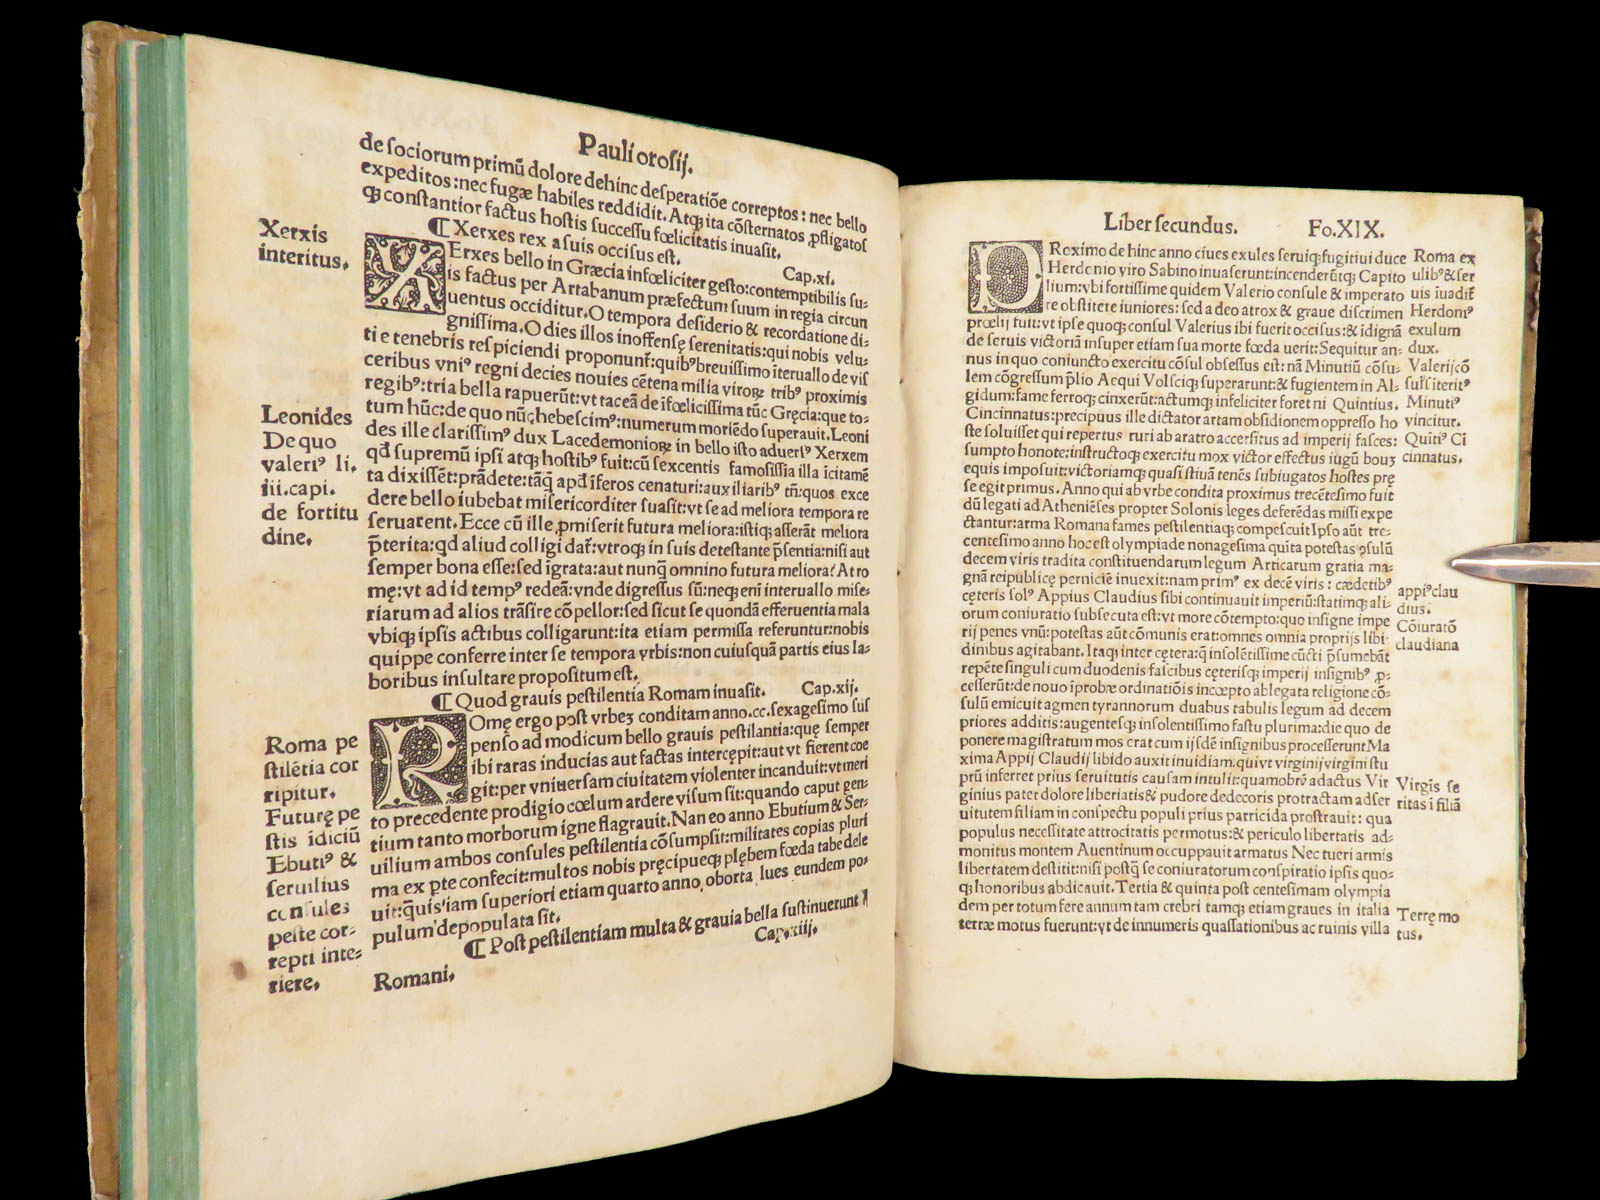 Pauli orosij.
de sociorum primũ dolore dehinc desperatiõe correptos: nec bello
expeditos: nec fugæ habiles reddidit. Atqꝫ ita cõsternatos ꝓfligatos
qꝫ constantior factus hostis successu fœlicitatis inuasit.
¶ Xerxes rex a suis occisus est. Cap.xi.
XErxes bello in Græcia infœliciter gesto: contemptibilis su-
is factus per Artabanum præfectum suum in regia circun
uentus occiditur. O tempora desiderio & recordatione di-
gnissima. O dies illos inoffensę serenitatis: qui nobis velu-
ti e tenebris respiciendi proponunt᷑: quibꝰ breuissimo ĩteruallo de vis
ceribus vniꝰ regni decies nouies cẽtena milia viroꝝ tribꝰ proximis
regibꝰ: tria bella rapuerũt: vt taceã de ĩfœlicissima tũc Gręcia: que to-
tum hũc: de quo nũc hebescimꝰ: numerum moriẽdo superauit. Leoni
des ille clarissimꝰ dux Lacedemonioꝝ in bello isto aduersꝰ Xerxem
qđ supremũ ipsi atqꝫ hostibꝰ fuit: cũ sexcentis famosissia illa ĩcitamẽ
ta dixissẽt: prãdete: tãq̃ apđ ĩferos cenaturi: auxiliaribꝰ tñ: quos exce
dere bello iubebat misericorditer suasit: vt se ad meliora tempora re
seruarent. Ecce cũ ille ꝓmiserit futura meliora: istiqꝫ asserãt meliora
p̃terita: qđ aliud colligi dat᷑: vtroqꝫ in suis detestante p̃sentia: nisi aut
semper bona esse: sed ĩgrata: aut nunq̃ omnino futura meliora? At ro
mę: vt ad id tempꝰ redeã: vnde digressus sũ: neqꝫ enĩ interuallo mise-
riarum ad alios trãsire cõpellor: sed sicut se quondã efferuentia mala
vbiqꝫ ipsis actibus colligarunt: ita etiam permissa referuntur: nobis
quippe conferre inter se tempora vrbis: non cuiusquã partis eius la-
boribus insultare propositum est.
¶ Quod grauis pestilentia Romam inuasit. Cap.xij.
ROmę ergo post vrbeꝫ conditam anno.cc.sexagesimo sus
penso ad modicum bello grauis pestilantia: quę semper
ibi raras inducias aut factas intercępit: aut vt fierent coe
git: per vniuersam ciuitatem violenter incanduit: vt meri
to precedente prodigio cœlum ardere visum sit: quando caput gen-
tium tanto morborum igne flagrauit. Nan eo anno Ebutium & Ser-
uilium ambos consules pestilentia cõsumpsit: militates copias pluri
ma ex pte confecit: multos nobis pręcipueqꝫ plębem fœda tabe dele
uit: q̃uis iam superiori etiam quarto anno, oborta lues eundem po-
pulum depopulata sit.
¶ Post pestilentiam multa & grauia bella sustinuerunt
Romani. Cap.xiij.
Xerxis
interitus.
Leonides
De quo
valeriꝰ li.
iii.capi.
de fortitu
dine.
Roma pe
stilẽtia cor
ripitur.
Futurę pe
stis ĩdiciũ
Ebutiꝰ &
seruilius
consules
peste cor-
repti inte-
riere.
Liber secundus. Fo.XIX.
PRoximo dehinc anno ciues exules seruiqꝫ fugitiui duce
Herdonio viro Sabino inuaserunt: incenderũtqꝫ Capito
lium: vbi fortissime quidem Valerio consule & imperato
re obstitere iuniores: sed adeo atrox & graue discrimen
prœlij fuit: vt ipse quoqꝫ consul Valerius ibi fuerit occisus: & idignã
de seruis victoriã insuper etiam sua morte fœda uerit: Sequitur an-
nus in quo coniuncto exercitu cõsul obsessus est: nã Minutiũ cõsu-
lem cõgressum p̃lio Aequi Volsciqꝫ superarunt: & fugientem in Al-
gidum: fame ferroqꝫ cinxerũt: actumqꝫ infeliciter foret ni Quintius.
Cincinnatus: precipuus ille dictator artam obsidionem oppresso ho
ste soluisset qui repertus ruri ab aratro accersitus ad imperij fasces:
sumpto honote: instructoqꝫ exercitu mox victor effectus iugũ bouꝫ
equis imposuit: victoriamqꝫ quasi stiuã tenẽs subiugatos hostes prę
se egit primus. Anno qui ab vrbe condita proximus trecẽtesimo fuit
dũ legati ad Atheniẽses propter Solonis leges deferẽdas missi expe
ctantur: arma Romana fames pestilentiaqꝫ compescuit Ipso aũt tre-
centesimo anno hoc est olympiade nonagesima quĩta potestas ꝯsulũ
decem viris tradita constituendarum legum Articarum gratia ma-
gnã reipublicę perniciẽ inuexit: nam primꝰ ex decẽ viris: cædetibꝰ
cęteris solꝰ Appius Claudius sibi continuauit imperiũ: statimqꝫ ali-
orum coniuratio subsecuta est: vt more cõtempto: quo insigne impe
rij penes vnũ: potestas aũt cõmunis erat: omnes omnia proprijs libi-
dinibus agitabant. Itaqꝫ inter cętera: q̃ insolẽtissime cũcti p̃sumebãt
repẽte singuli cum duodenis fascibus cęterisqꝫ imperij insignibꝰ ꝓ-
cesserũt: de nouo ĩprobæ ordinatiõis incœpto ablegata religione cõ-
sulũ emicuit agmen tyrannorum duabus tabulis legum ad decem
priores additis: augentesqꝫ insolentissimo fastu plurima: die quo de
ponere magistratum mos erat cum ijsdẽ insignibus processerunt Ma
xima Appij Claudij libido auxit inuidiam: qui vt virginij virgini stu
prũ inferret prius seruitutis causam intulit: quamobrẽ adactus Vir
ginius pater dolore libertatis & pudore dedecoris protractam ad ser
uitutem filiam in conspectu populi prius parricida prostrauit: qua
populus necessitate attrocitatis permotus: & periculo libertatis ad-
monitus montem Auentinum occuppauit armatus Nec tueri armis
libertatem destitit: nisi postq̃ se coniuratorum conspiratio ipsis quo-
qꝫ honoribus abdicauit. Tertia & quinta post centesimam olympia
dem per totum fere annum tam crebri tamqꝫ etiam graues in italia
terræ motus fuerunt: vt de innumeris quassationibus ac ruinis villa
Roma ex
ulibꝰ & ser
uis ĩuadit᷑
Herdoniꝰ
exulum
dux.
Valerij cõ
sulis ĩteritꝰ
Minutiꝰ
vincitur.
Quĩtiꝰ Ci
cinnatus.
appiꝰ clau
dius.
Cõiuratõ
claudiana
Virgĩs se
ritas ĩ filiã
Terrę mo
tus.